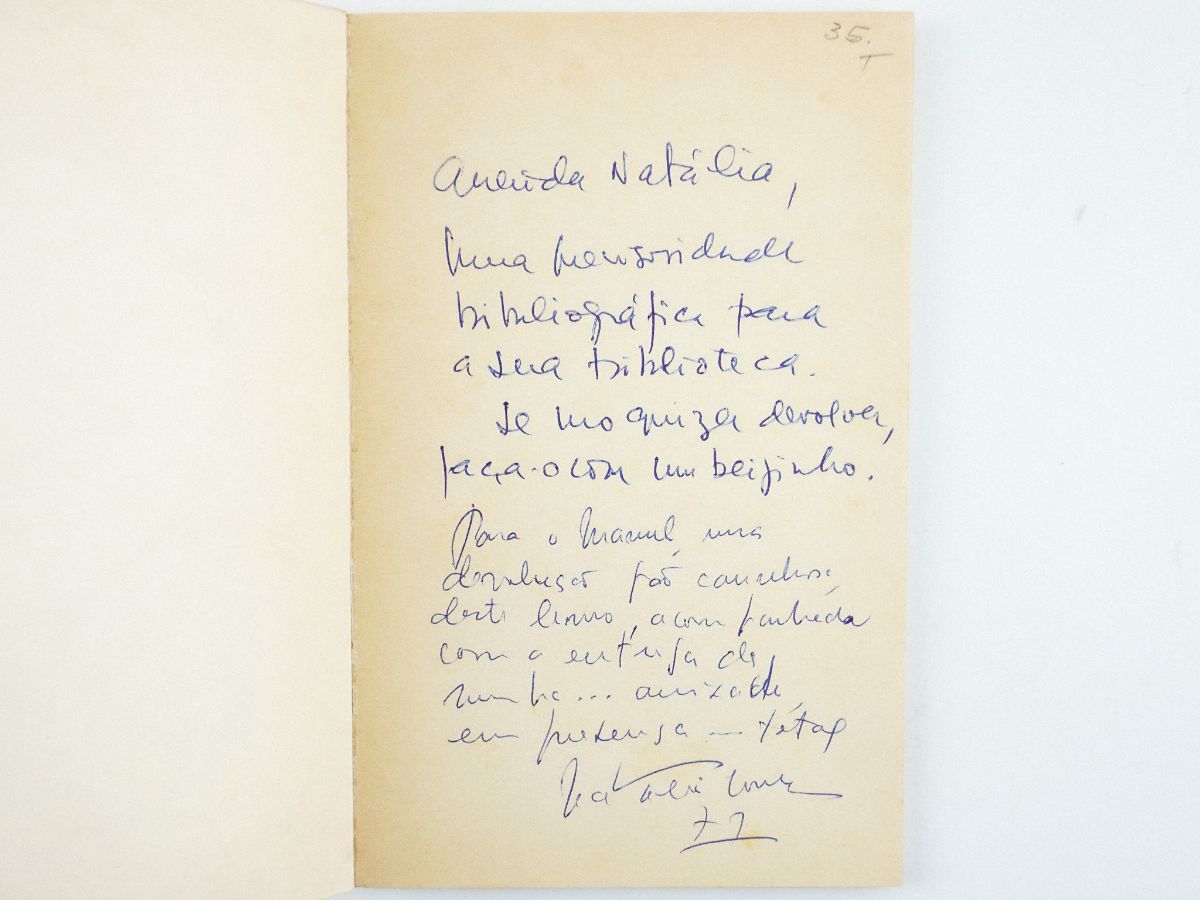 35.
Querida Natália,
Uma preciosidade
bibliográfica para
a sua biblioteca.
Se mo quiza devolver,
faça-o com um beijinho.
Para o Manuel, uma
devolução
deste livro, acompanhada
com a entrega da
minha... amizade,
em presença — total
Natália Correia
77